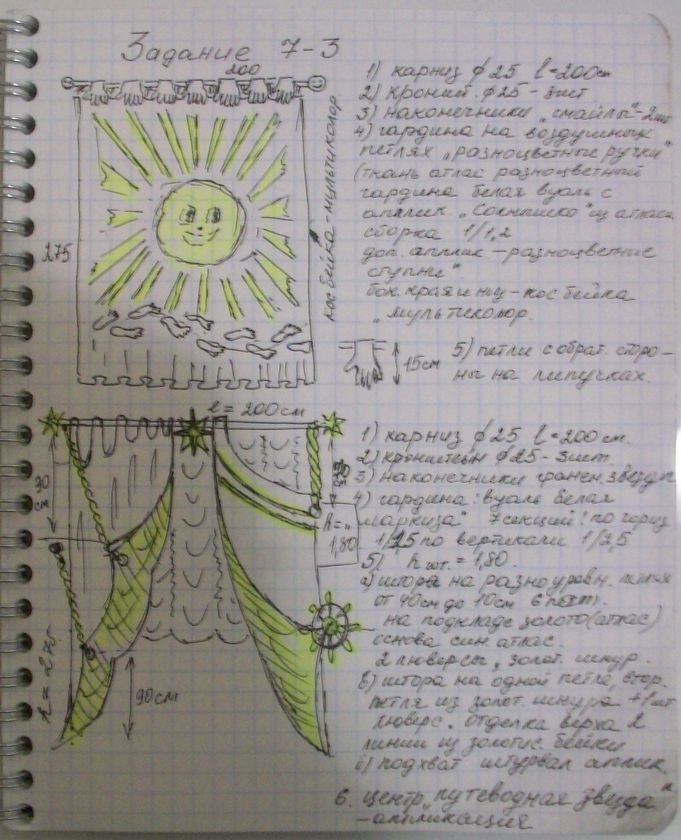 Задание 7-3
200
275
кос бейка - мультиколор
1) карниз ф 25 l=200см
2) кроншт. ф25 - 3шт
3) наконечники „смайлы"-2шт
4) гардина на воздушных
петлях „разноцветные ручки"
(ткань атлас разноцветный
гардина белая вуаль с
апплик. „Солнышко" из атласа
сборка 1/1,2
доп. апплик - разноцветные
ступни".
бок. края и низ - кос бейка
„мультиколор.
15см
5) петли с обрат. сторо-
ны на липучках.
l = 200см
90
см
h=„
1,80
h = 275
90см
1) карниз ф 25 l=200см.
2) кронштейн ф25 - 3шт.
3) наконечники гранен. звезды
4) гардина: вуаль белая
маркиза" 7 секций! по гориз
1/1,5 по вертикали 1/2,5
5) h шт. = 1,80.
а) штора на разноуровн. петлях
от 40см до 10см
на подкладе золото (атлас)
основа син. атлас.
2 люверсы, золот. шнур.
в) штора на одной петле, втор.
петля из золот. шнура + 1шт
люверс. отделка верха 2
линии из золотис. бейки
подхват штурвал апплик.
6. центр „путеводная звезда"
- аппликация